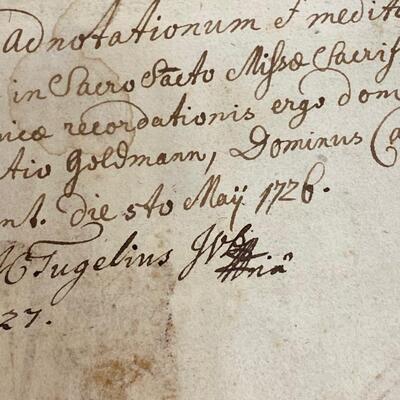 adnotationum et medita
in Sacro Scto Missæ Sacrif
nicæ recordationis ergo dom
tio Goldmann, Dominus Ca
nt. die 5to Maÿ 1726.
Tugelius
27.